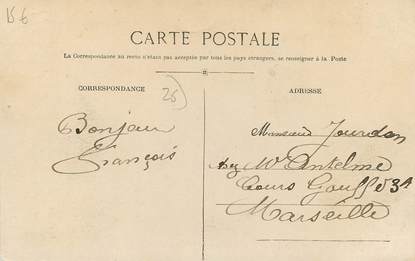 CARTE POSTALE
La Correspondance au recto n'étant pas acceptée par tous les pays étrangers, se renseigner à la Poste
CORRESPONDANCE
25
Bonjour
François
ADRESSE
Monsieur Jourdan
chez Mr Antelme
Cours Gouffé 31
Marseille